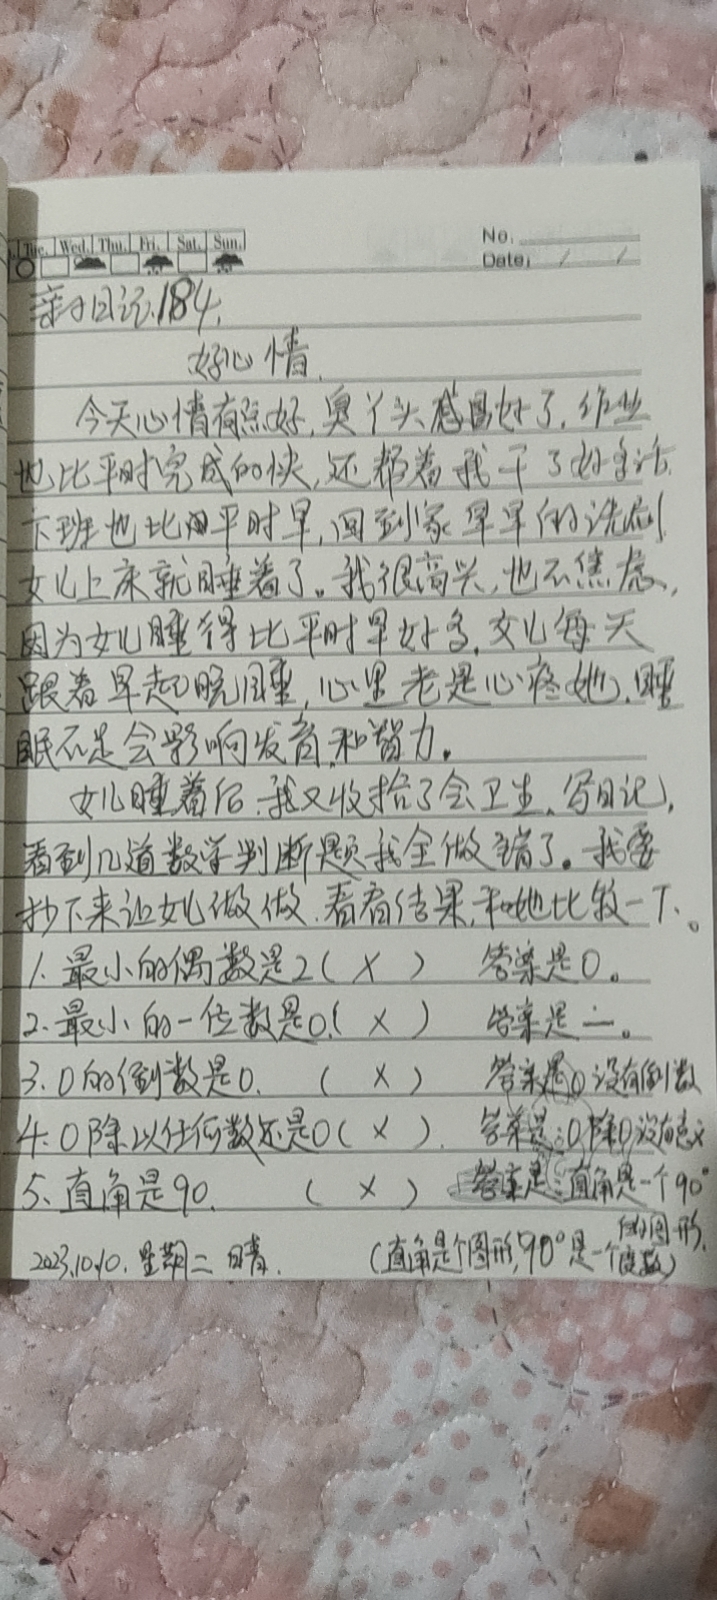 Tue. Wed. Thu. Fri. Sat. Sun.
No.
Date: / /
亲子日记.184.
好心情.
今天心情有点好,臭丫头感冒好了.作业
也比平时完成的快,还帮着我干了好多活.
下班也比平时早,回到家早早的洗刷
女儿上床就睡着了。我很高兴,也不焦虑,
因为女儿睡得比平时早好多.女儿每天
跟着早起晚睡,心里老是心疼她.睡
眠不足会影响发育和智力。
女儿睡着后.我又收拾了会卫生.写日记,
看到几道数学判断题我全做错了。我要
抄下来让女儿做做.看看结果,和她比较一下。
1.最小的偶数是2(×) 答案是0。
2.最小的一位数是0.(×) 答案是一。
3.0的倒数是0. (×) 答案是0没有倒数
4.0除以任何数还是0(×). 答案是:0除0没有意义
5、直角是90. (×) 答案是:直角是一个90°
的图形.
2023.10.10.星期二 晴. (直角是个图形,90°是一个度数)